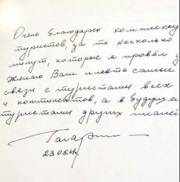 Очень благодарен коллективу
туристов, за те несколько
минут, которые я провёл у
Желаю Вам иметь самые
связи с туристами всех
и континентов, а в будущем
туристами других планет
Гагарин